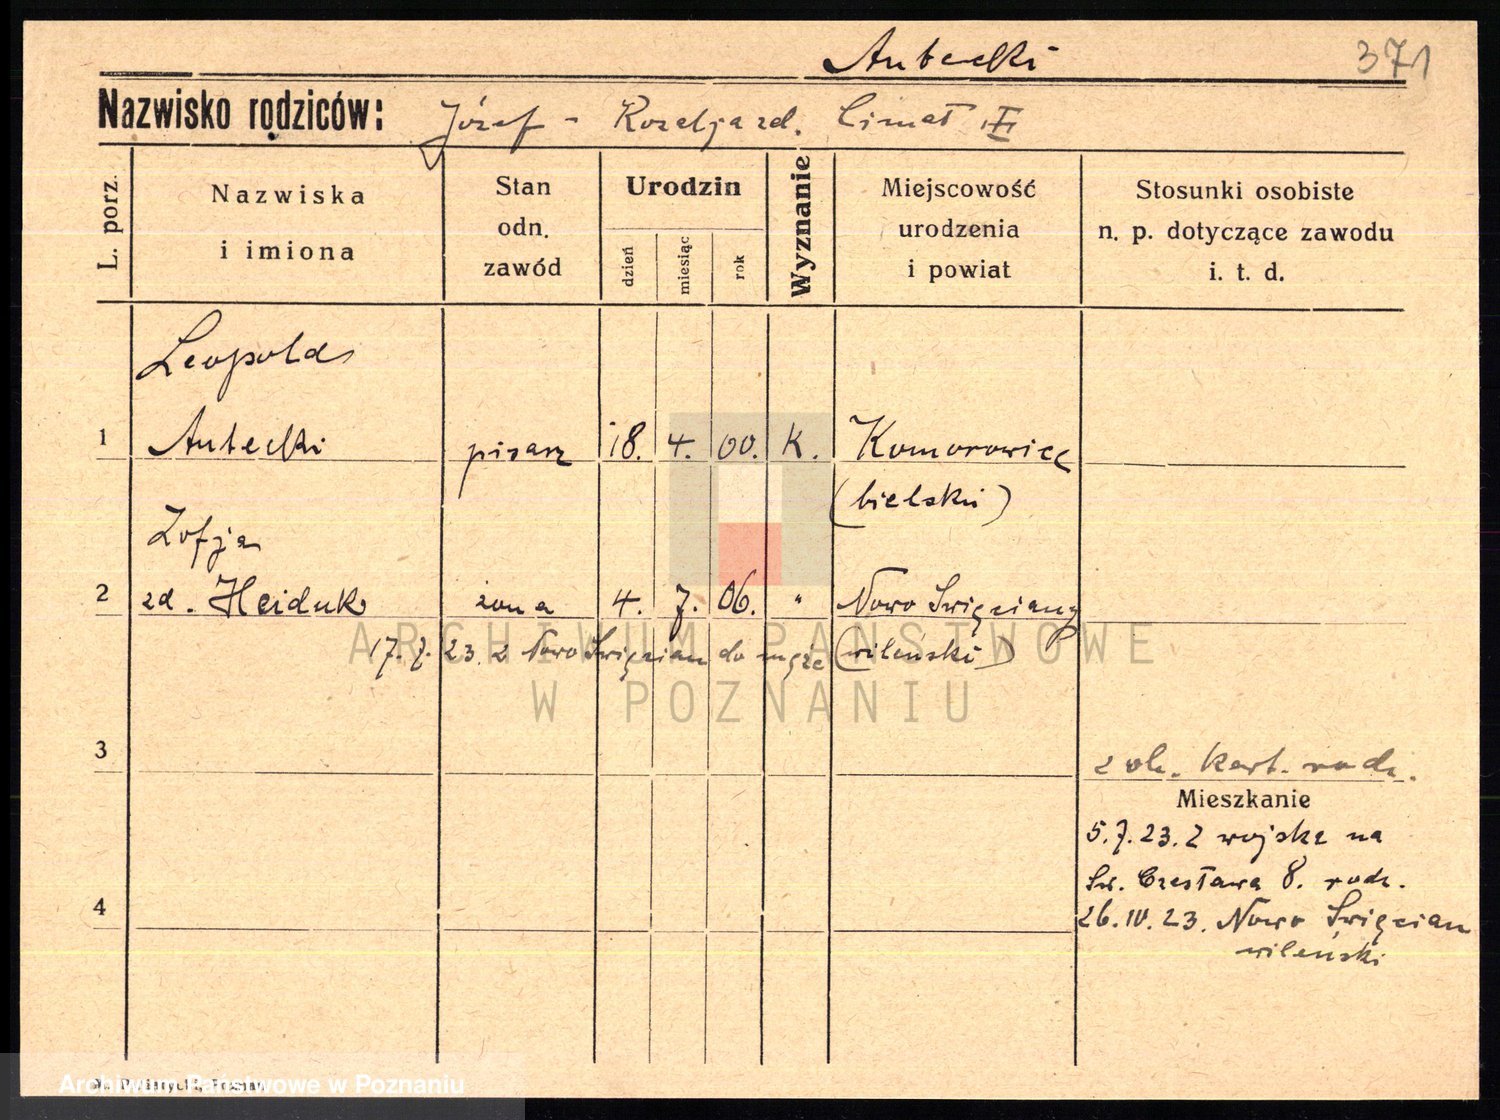 Autecki
371
Nazwisko rodziców: Józef - Rozalja zd. Cimał
L. porz.
Nazwiska
i imiona
Stan
odn.
zawód
Urodzin
dzień
miesiąc
rok
Wyznanie
Miejscowość
urodzenia
i powiat
Stosunki osobiste
n. p. dotyczące zawodu
i. t. d.
Leopold
1 Autecki pisarz 18. 4. 00. K. Komorowice
(bielski)
Zofja
2 zd. Heiduk żona 4. 7. 06. " Nowo Święciany
17. 7. 23. z Nowo Święcian do męża (wileński)
ARCHIWUM PAŃSTWOWE
W POZNANIU
3
zob. kart. rodz.
Mieszkanie
5.7.23. z wojska na
Św. Czesława 8. rodz.
4
26.IV.23. Nowo Święcian
wileński
Archiwum Państwowe w Poznaniu